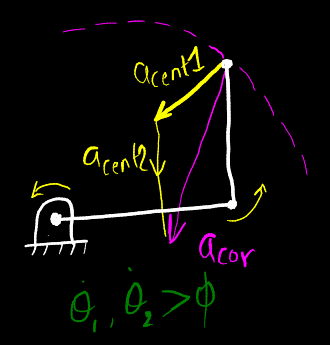 acent1
acent2
acor
θ̇₁, θ̇₂ > ϕ